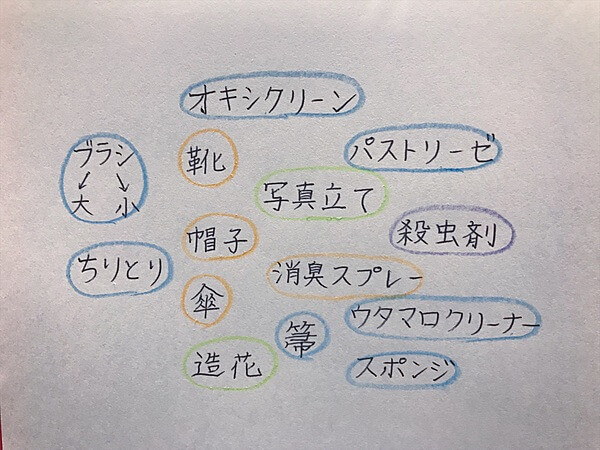 オキシクリーン
ブラシ
大 小
靴
パストリーゼ
写真立て
帽子
殺虫剤
ちりとり
消臭スプレー
傘
ウタマロクリーナー
箒
造花
スポンジ